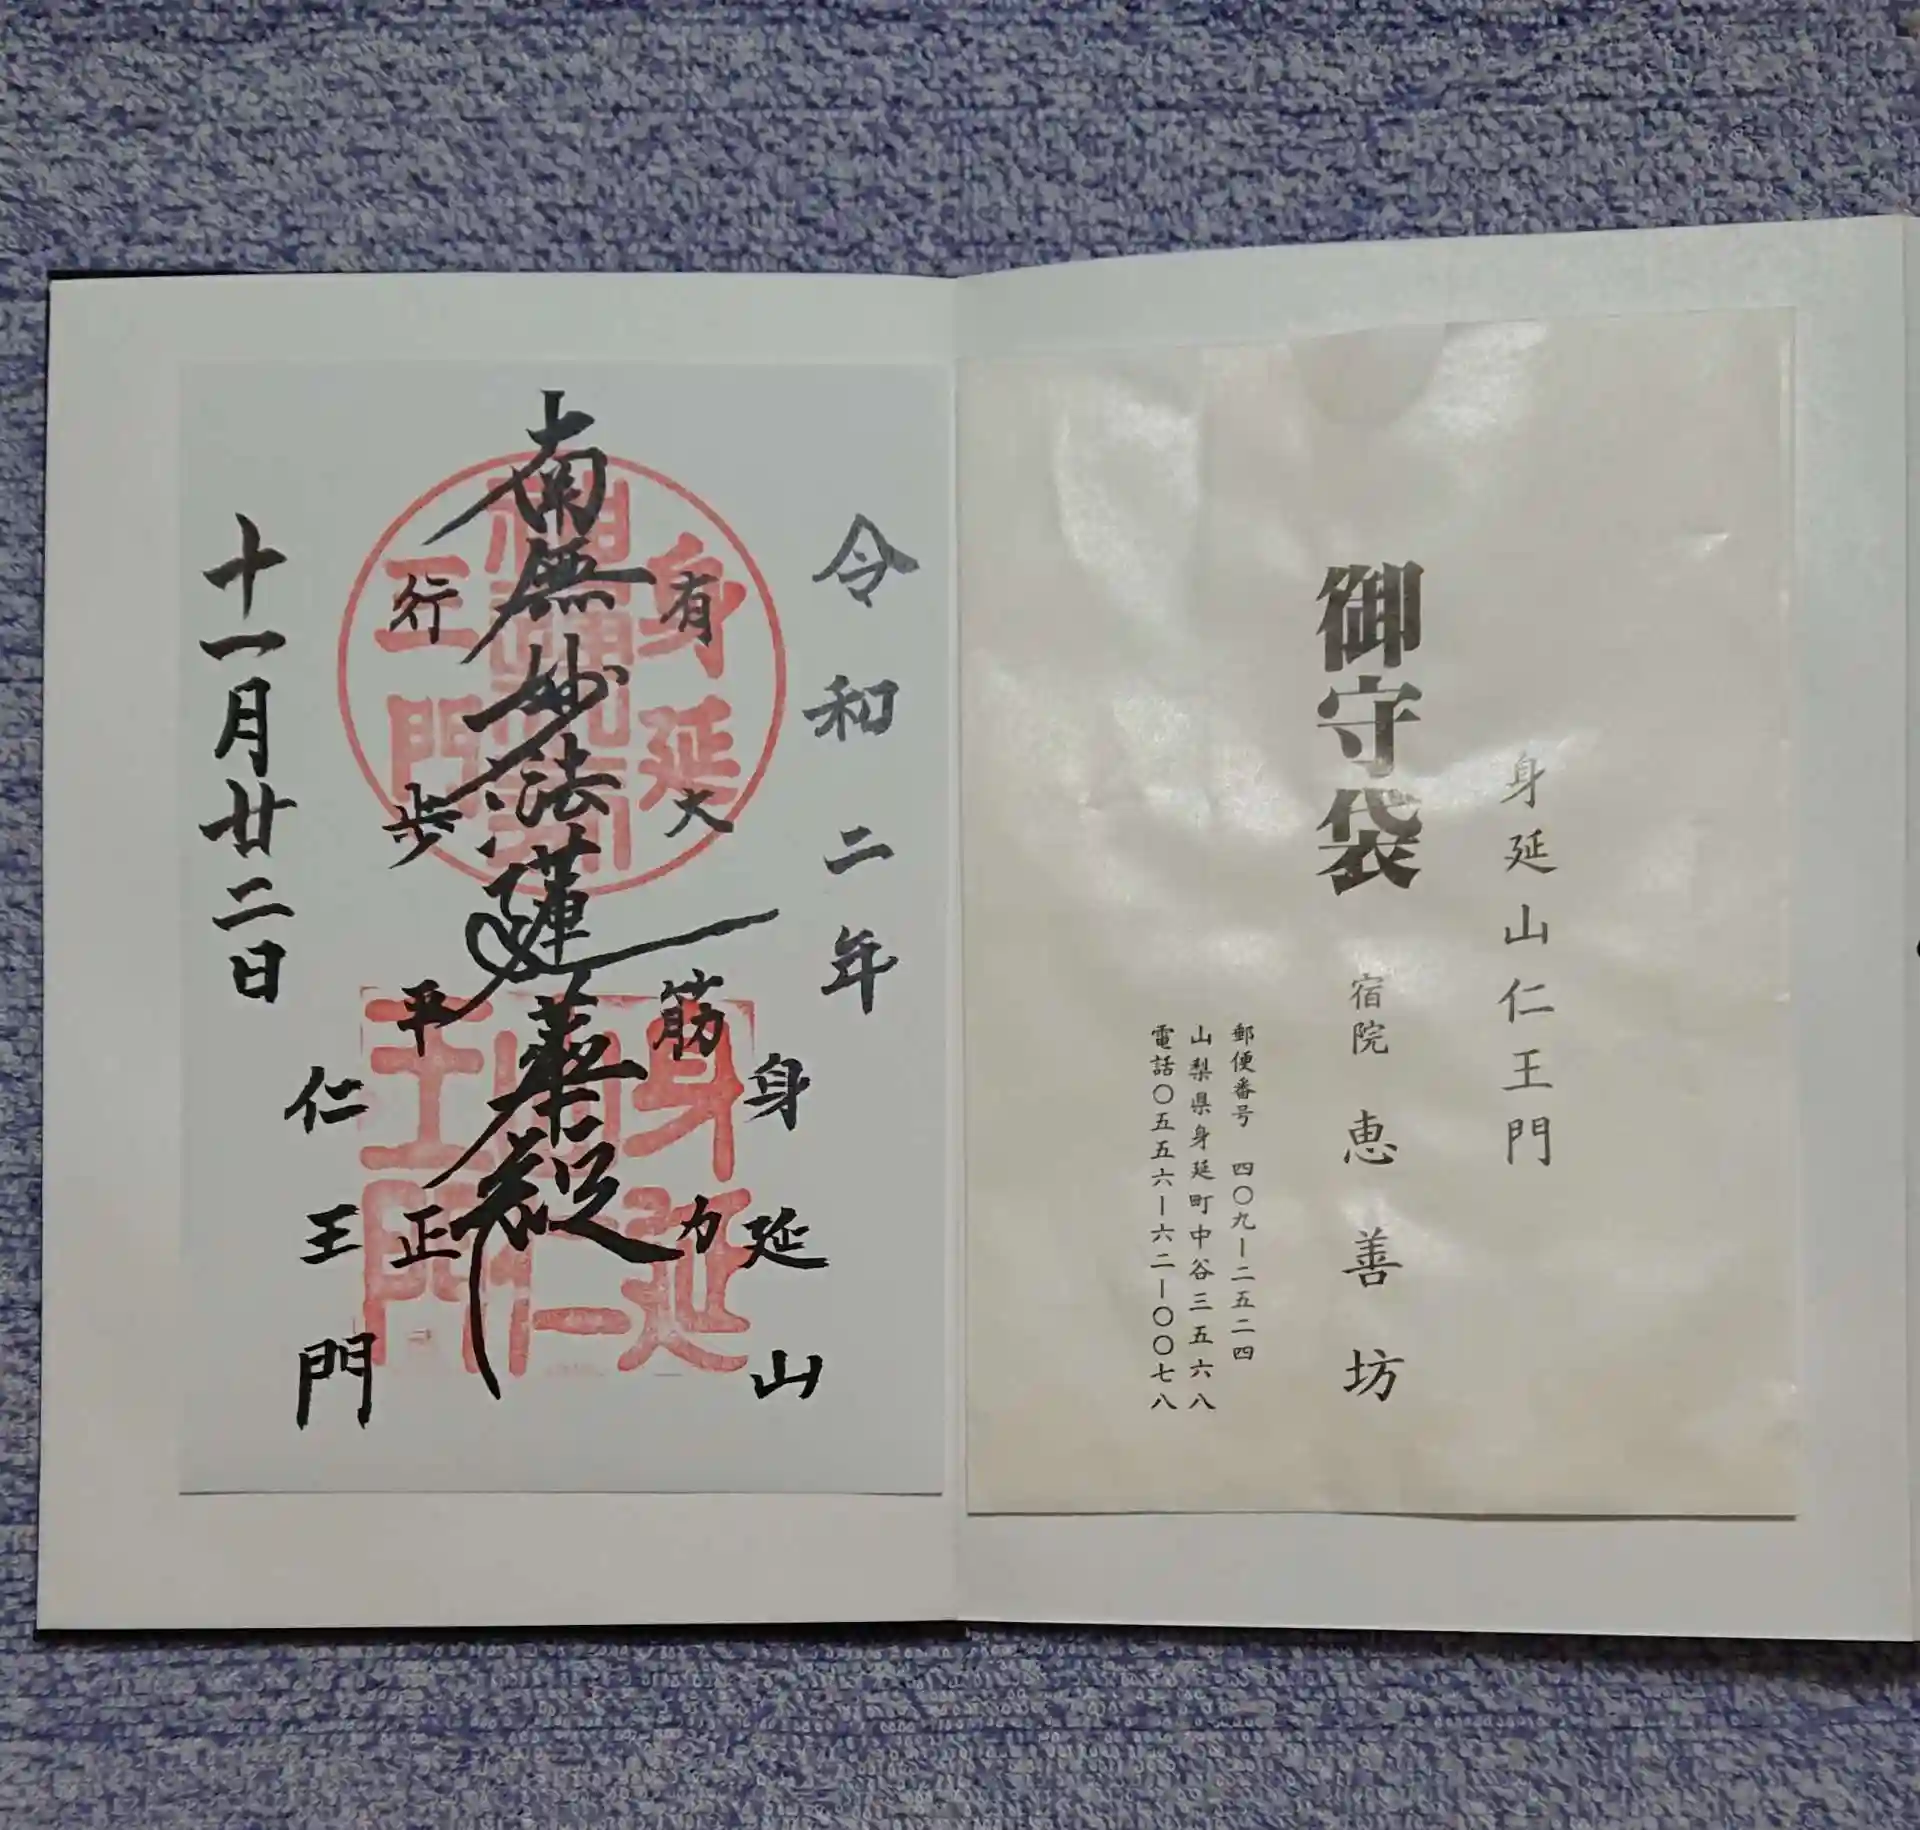 身延山仁王門
御守袋 宿院 恵善坊
郵便番号 四〇九ー二五二四
山梨県身延町中谷三五六八
電話〇五五六ー六二ー〇〇七八
令和二年
身延山
有大筋力
南無妙法蓮華経
行歩平正
仁王門
十一月廿二日
身延
王門
身延
山仁
王門